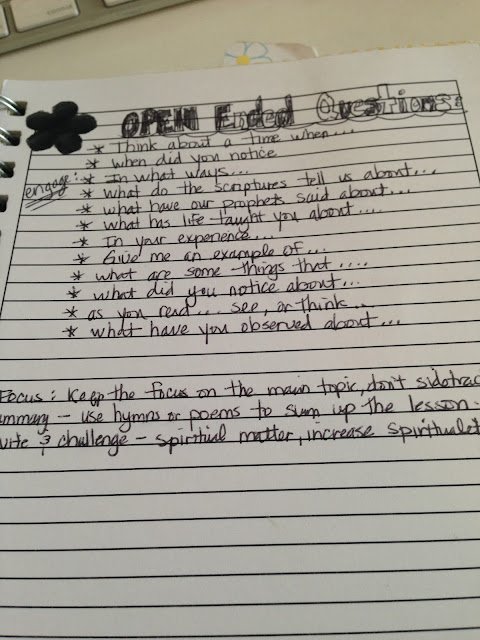 OPEN Ended Questions:
* Think about a time when...
* when did you notice
engage: * In what ways...
* What do the scriptures tell us about...
* what have our prophets said about....
* what has life taught you about....
* In your experience....
* Give me an example of...
* what are some things that ....
* what did you notice about...
* as you read.... see, or think...
* what have you observed about...
Focus: Keep the focus on the main topic, don't sidetrac
ummary - use hymns or poems to sum up the lesson.
vite & challenge - spiritual matter, increase spiritualet